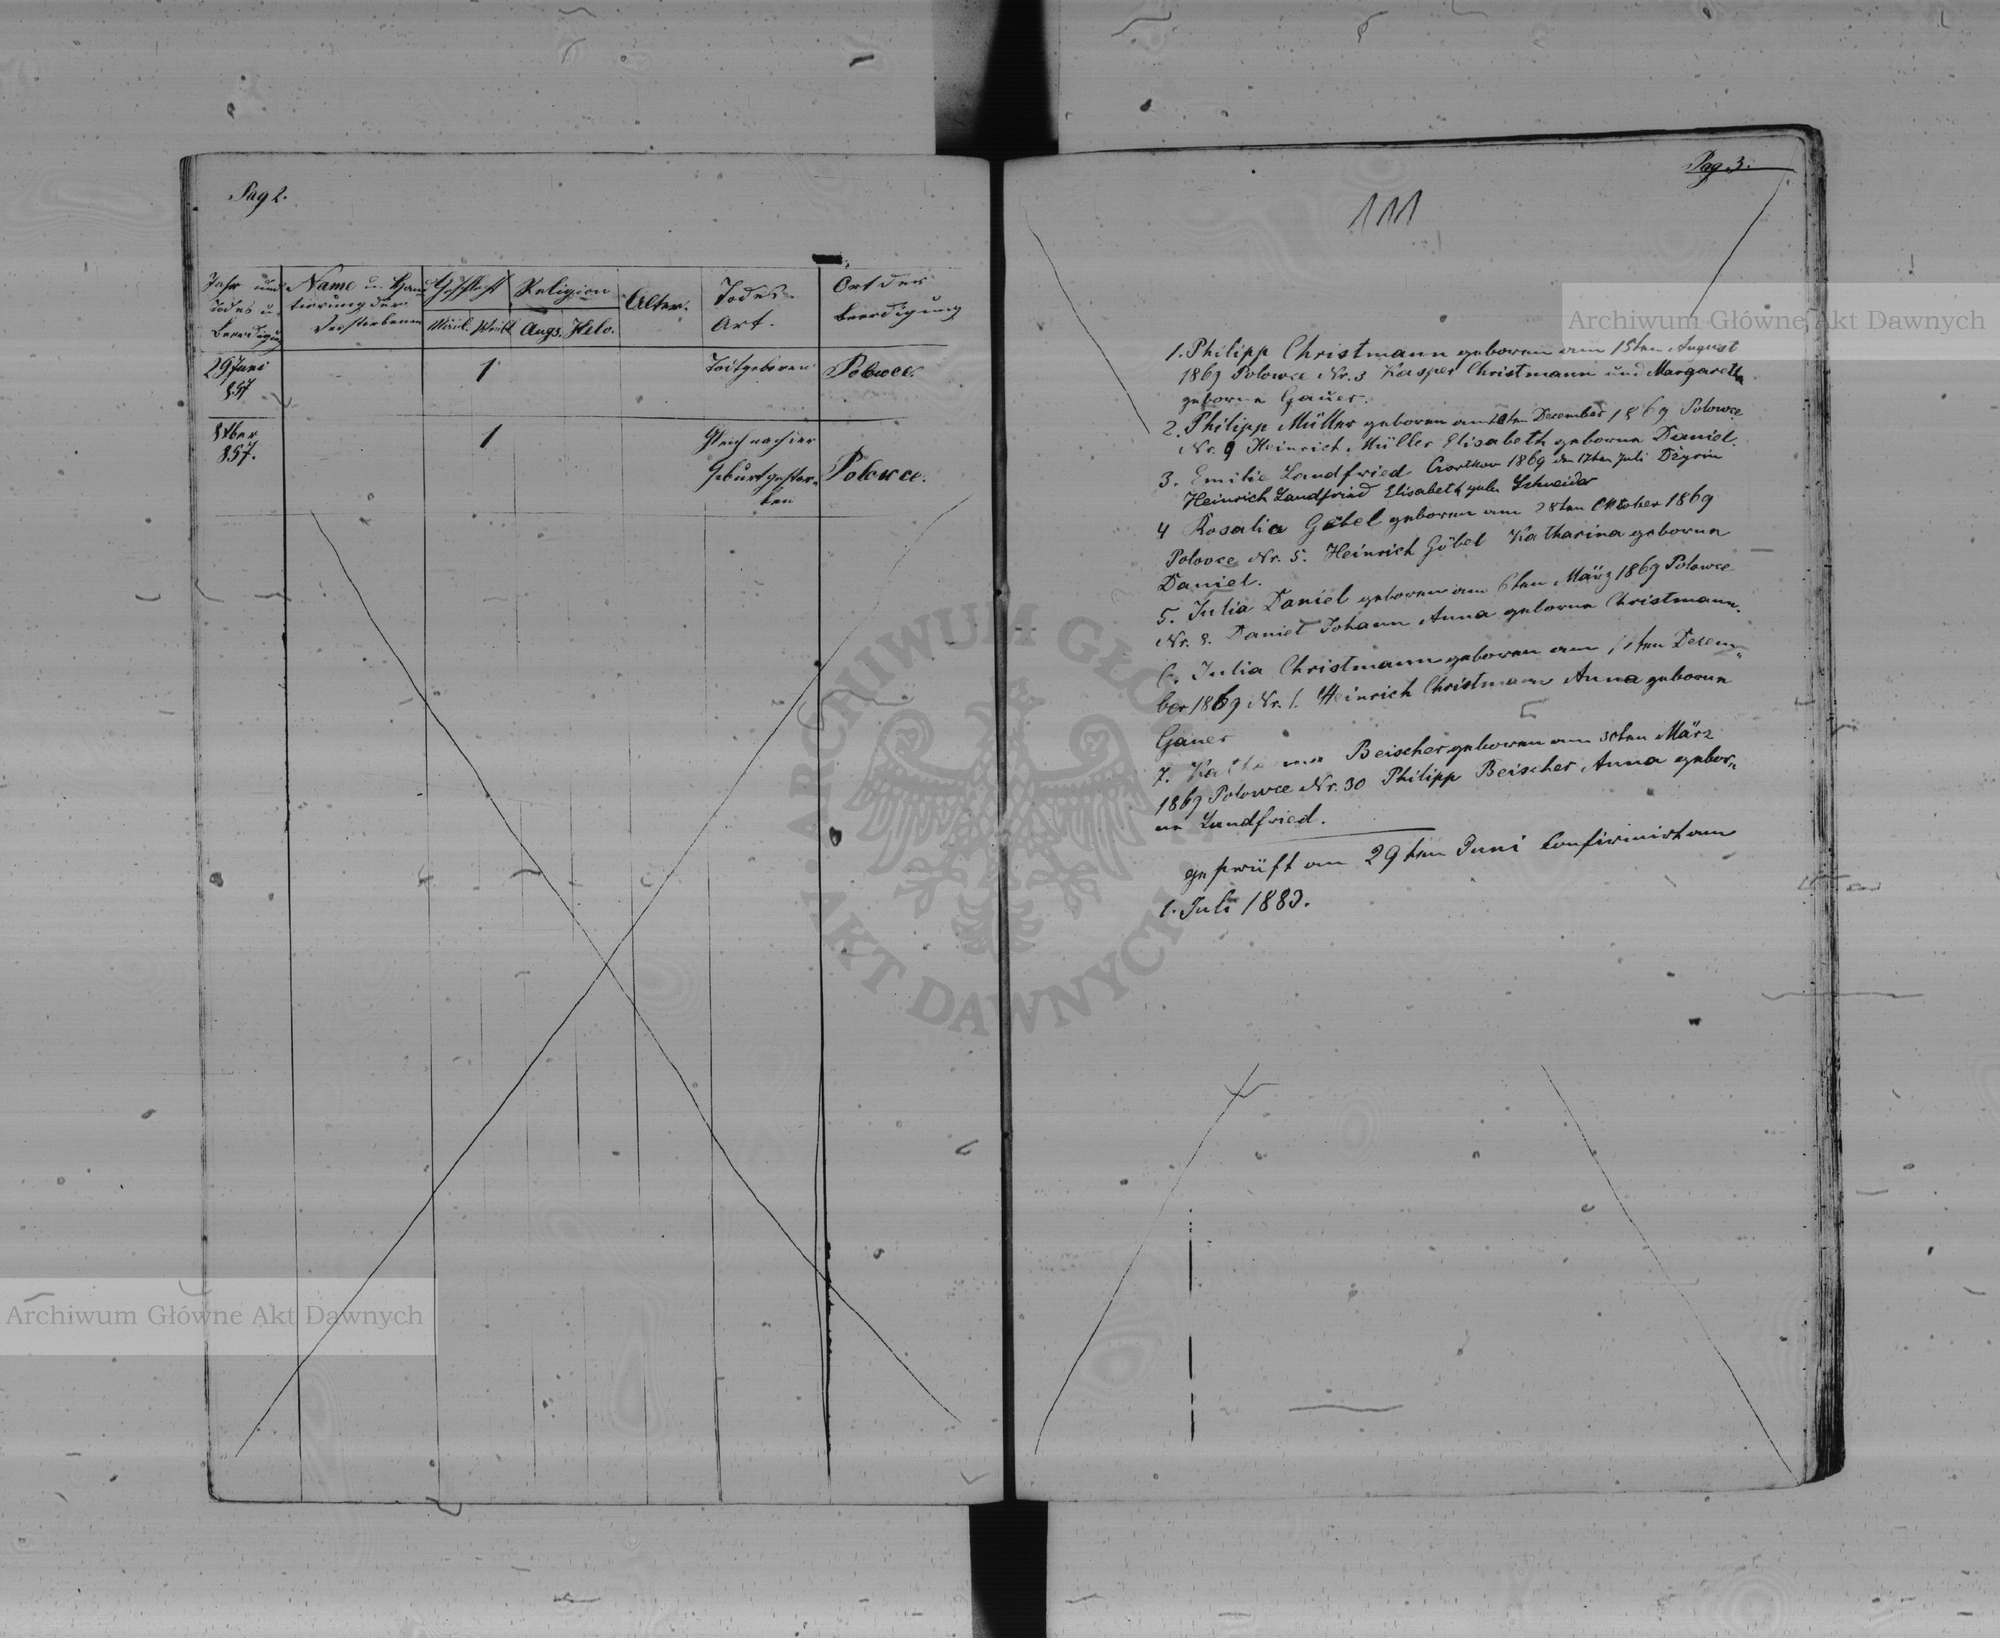 Pag 2.
Jahr und
Todes u.
Beerdigung
Name u.
tierung der
Verstorbenen
Geschlecht
Männl.
Weibl.
Religion
Augs.
Helv.
Alter.
Todes-
Art.
Ort der
Beerdigung
29 Juni
857
1
Todtgeboren
Polowce.
8ber
857.
1
Gleich nach der
Geburt gestor-
ben
Polowce.
Pag 3.
111
1. Philipp Christmann geboren am 15ten August
1869 Polowce Nr. 3 Kasper Christmann und Margareth
geborne Gauer.
2. Philipp Müller geboren am Dezember 1869 Polowce
Nr. 9 Heinrich Müller Elisabeth geborne Daniel
3. Emilie Landfried Czortkow 1869 den 17ten Juli
Heinrich Landfried Elisabeth gebr Schneider
4 Rosalia Göbel geboren am 28ten Oktober 1869
Polowce Nr. 5. Heinrich Göbel Katharina geborne
Daniel.
5. Julia Daniel geboren am 6ten März 1869 Polowce
Nr. 8. Daniel Johann Anna geborne Christmann.
6. Julia Christmann geboren am Dezem-
ber 1869 Nr. 1. Heinrich Christmann Anna geborne
Gauer
7. Katharina Beischer geboren am März
1869 Polowce Nr. 30 Philipp Beischer Anna gebor-
ne Landfried.
geprüft am 29ten Juni Confirmirt am
1. Juli 1883.
Archiwum Główne Akt Dawnych
Archiwum Główne Akt Dawnych
ARCHIWUM GŁÓWNE AKT DAWNYCH